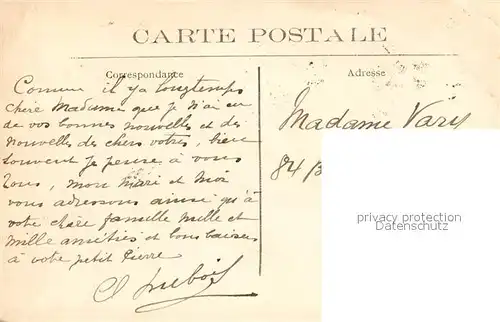 CARTE POSTALE
Correspondance
Adresse
Comme il y a longtemps
chère Madame que je n'ai eu
de vos bonnes nouvelles et de
nouvelles des chers votres, bien
souvent je pense à vous
tous, mon mari et moi
vous adressons ainsi qu'à
votre chère famille mille et
mille amitiés et bons baisers
à votre petit Pierre
Dubois
Madame
84
privacy protection
Datenschutz